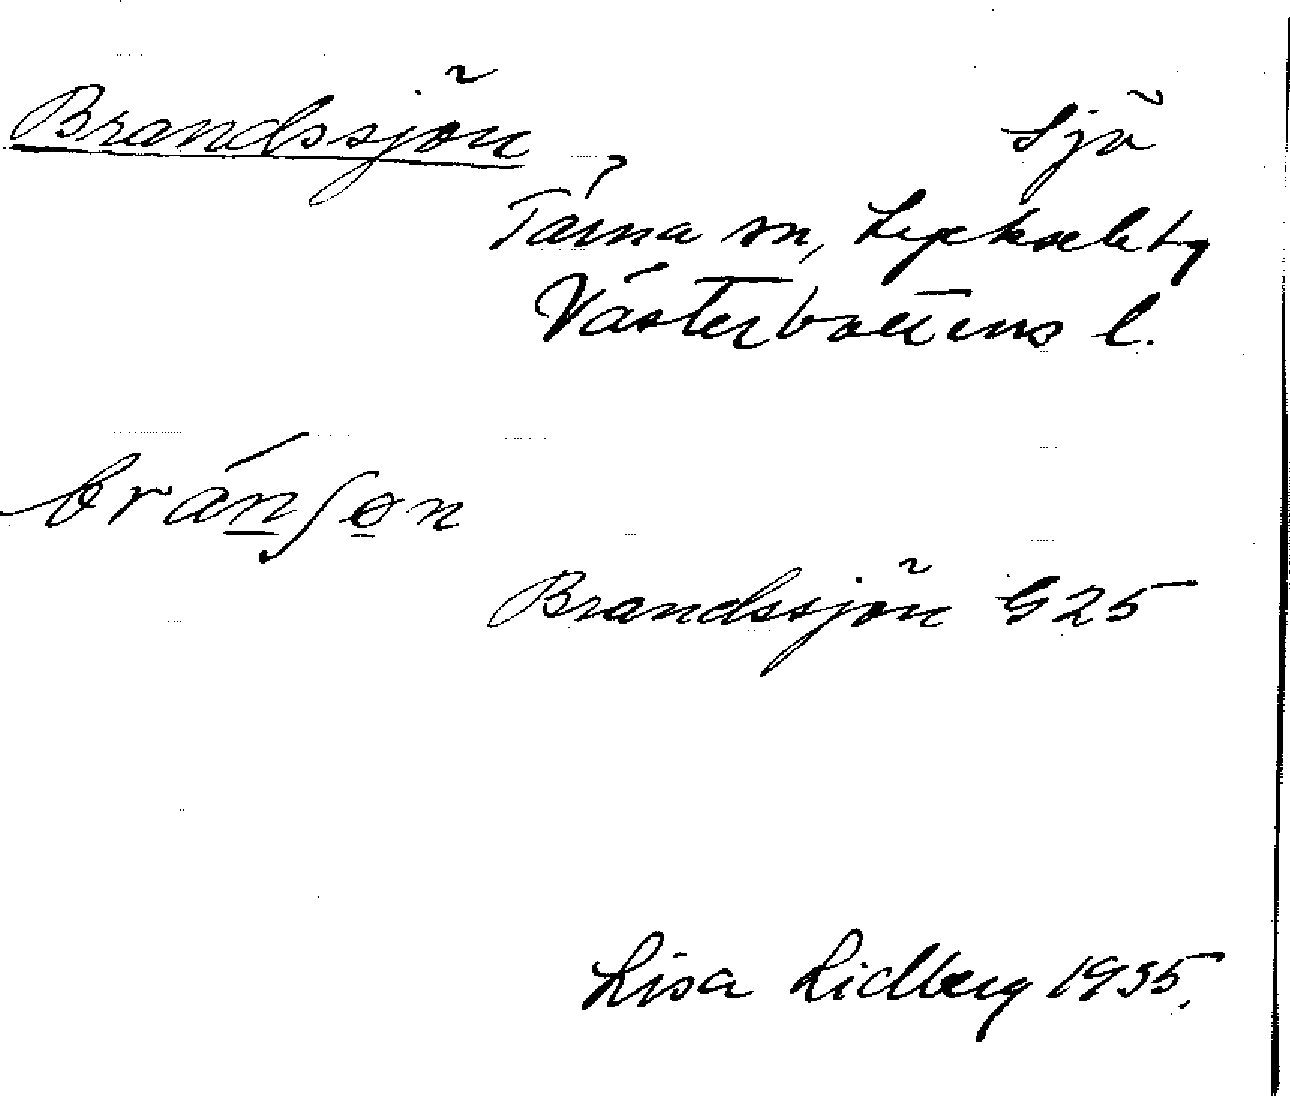 Brandssjön, Sjö
Tärna sn, Lycksele tg
Västerbottens l.
bránʃøn
Brandssjön G25
Lisa Lidberg 1935.